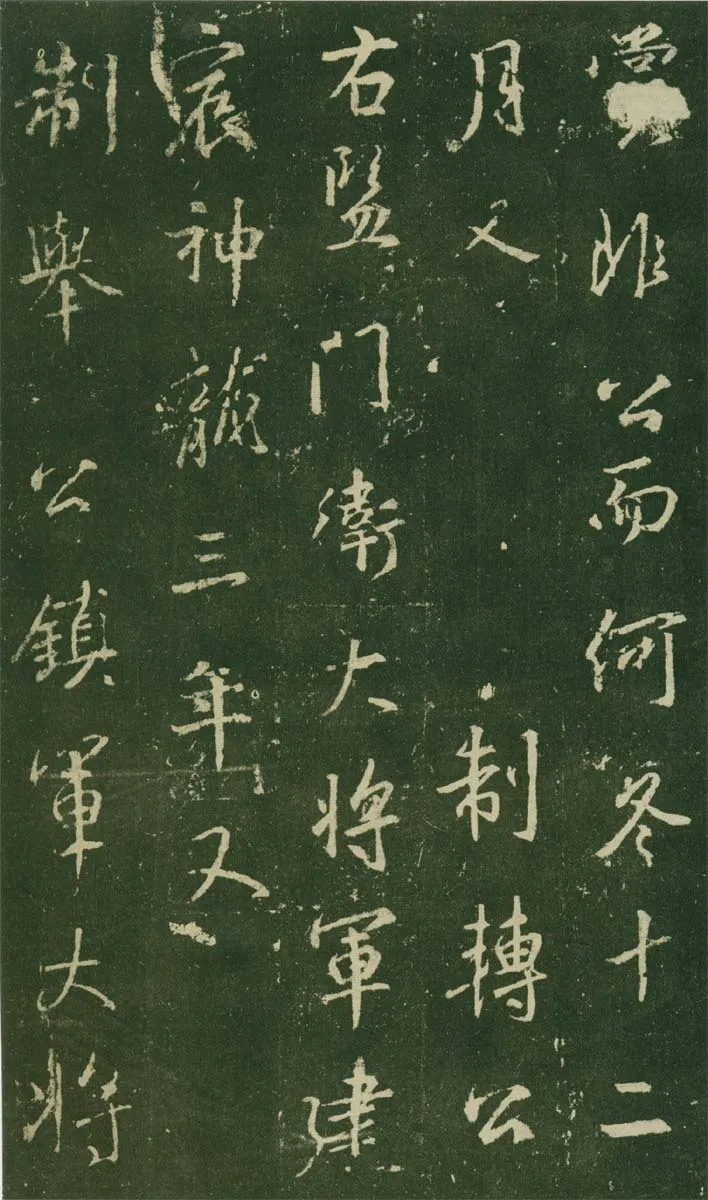 賞非公而何冬十二
月又制轉公
右監門衛大將軍建
神龍三年又
制舉公鎮軍大將